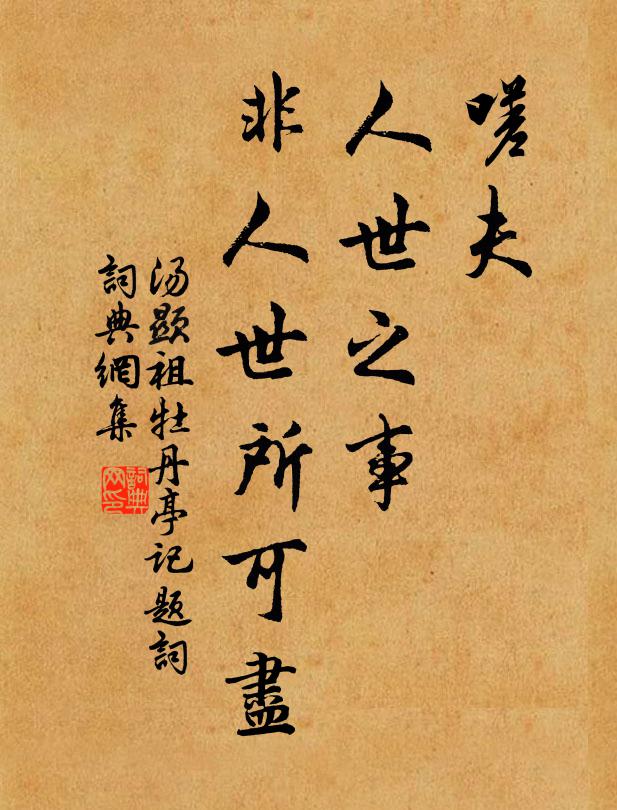 嗟夫
人世之事
非人世所可盡
汤顯祖牡丹亭记题詞
詞典網集
詞典
网印